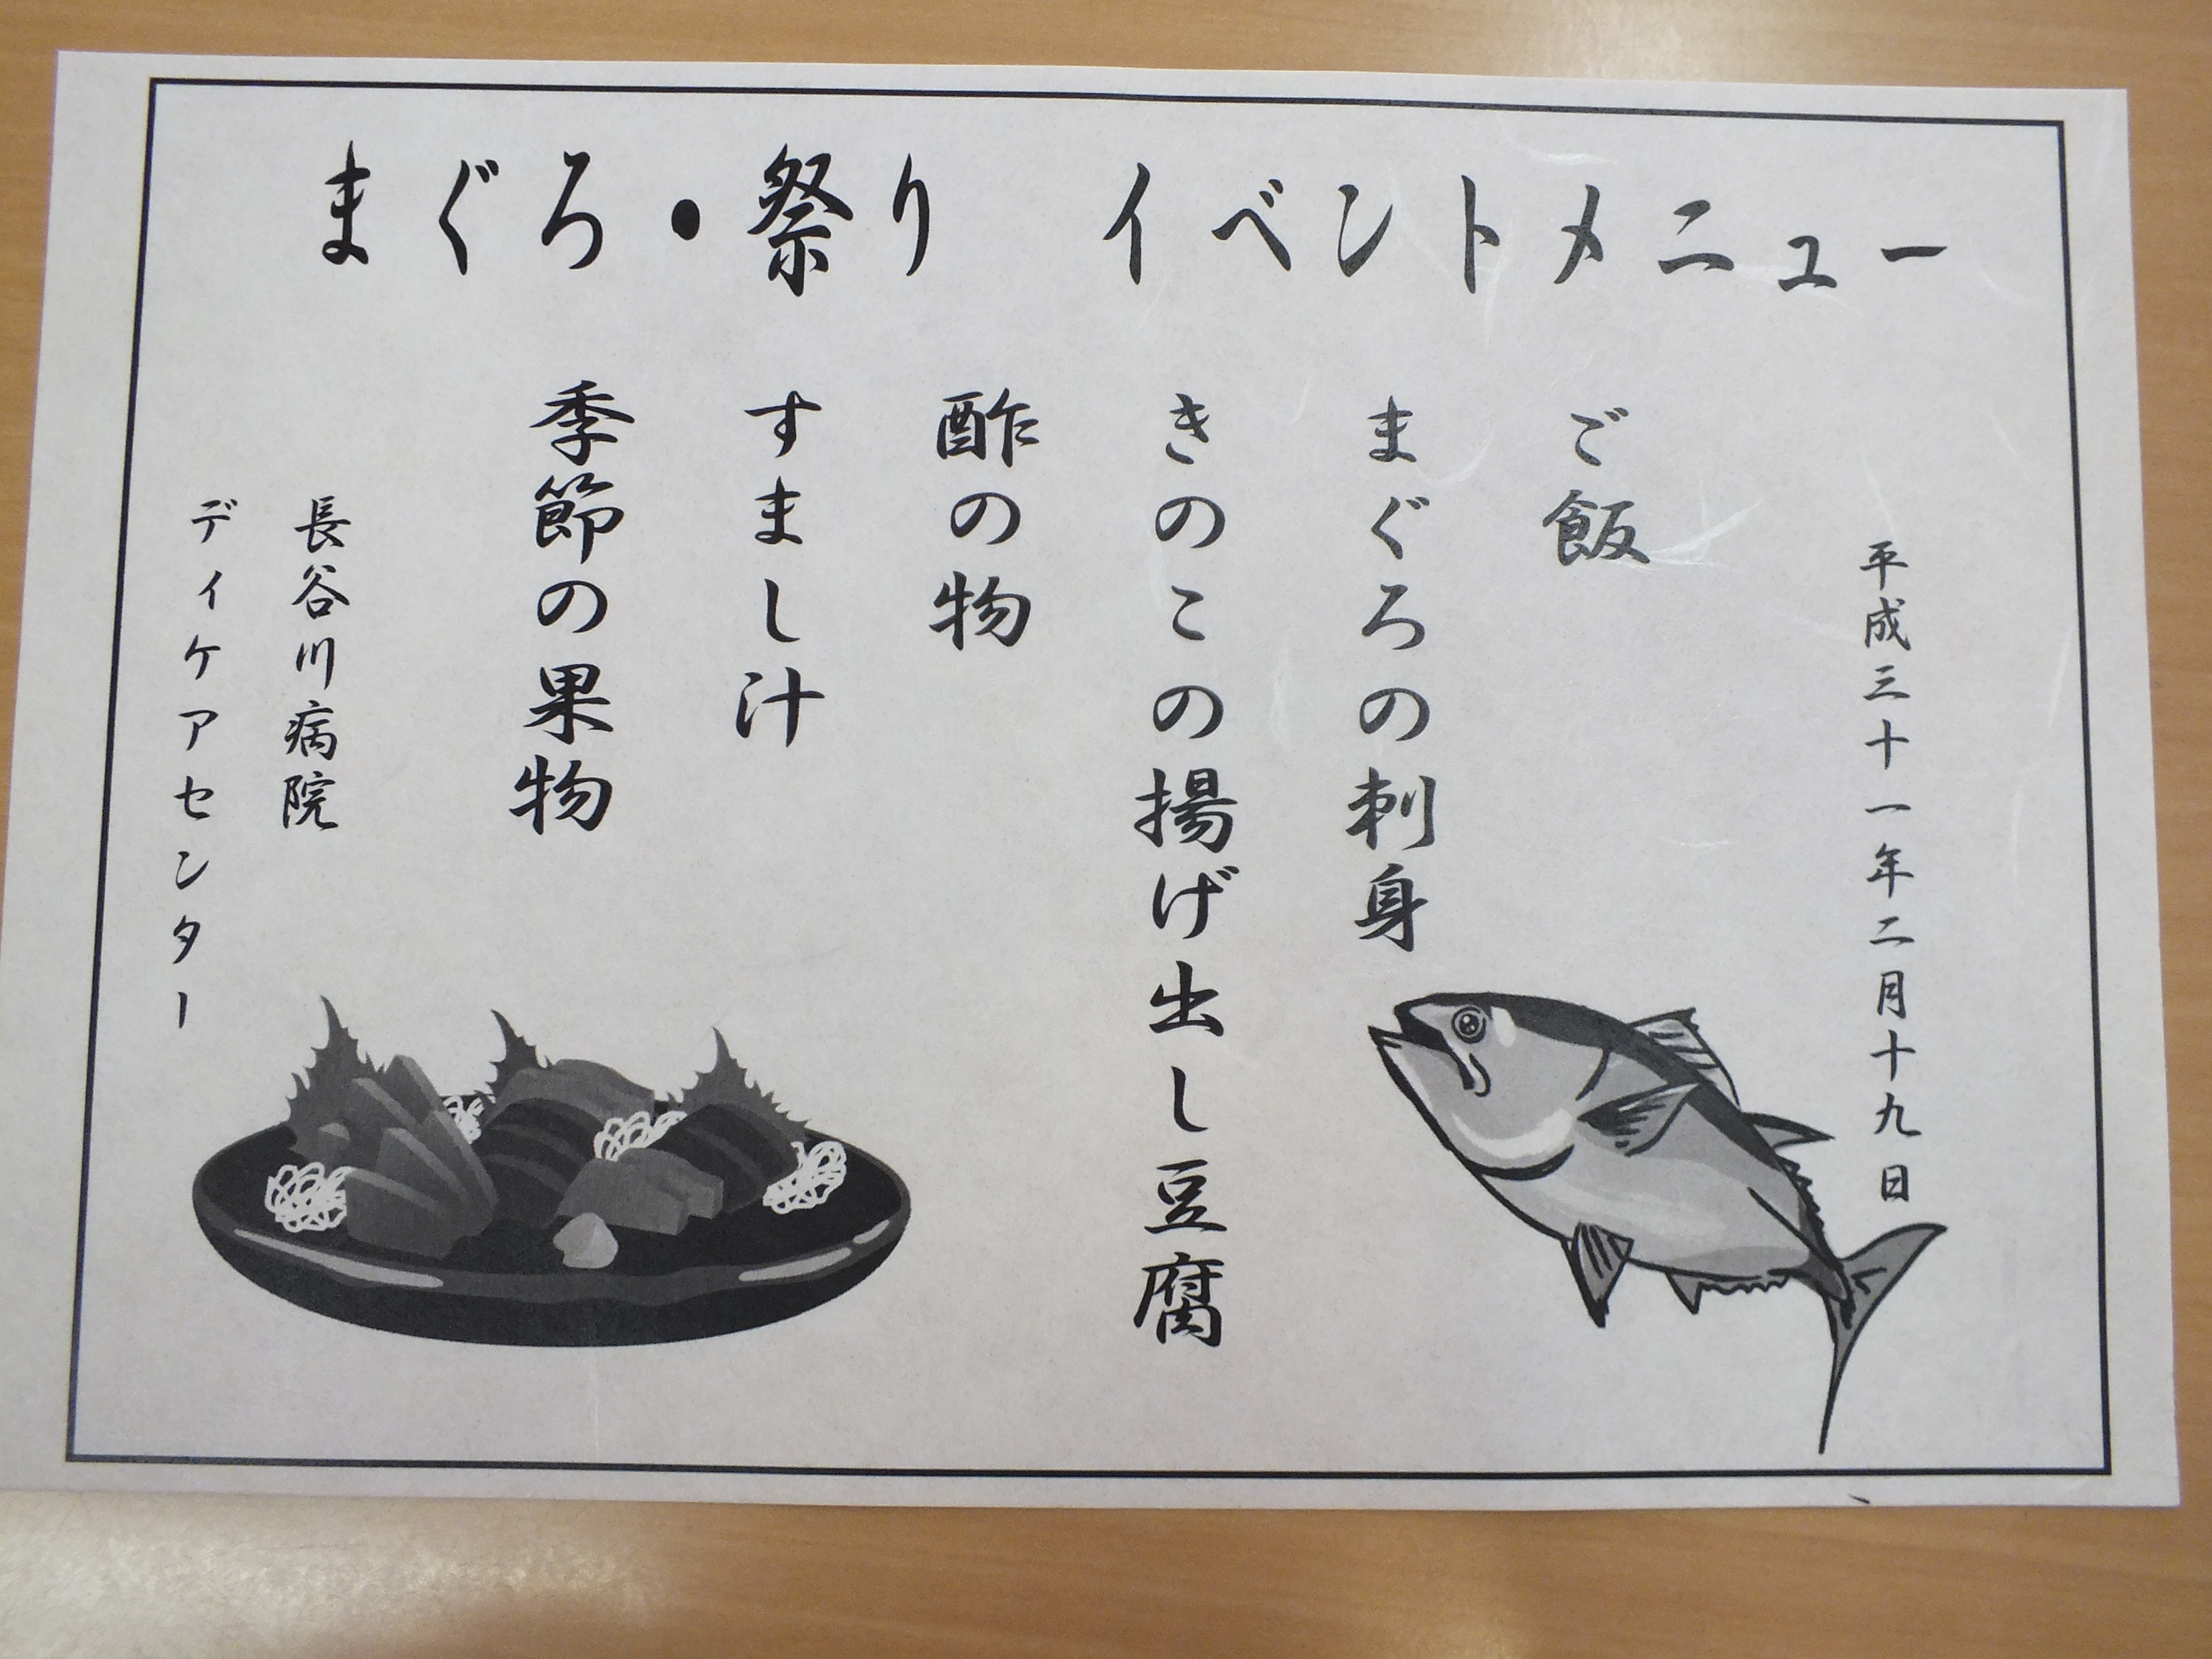 まぐろ・祭り　イベントメニュー
平成三十一年二月十九日
ご飯
まぐろの刺身
きのこの揚げ出し豆腐
酢の物
すまし汁
季節の果物
長谷川病院
デイケアセンター